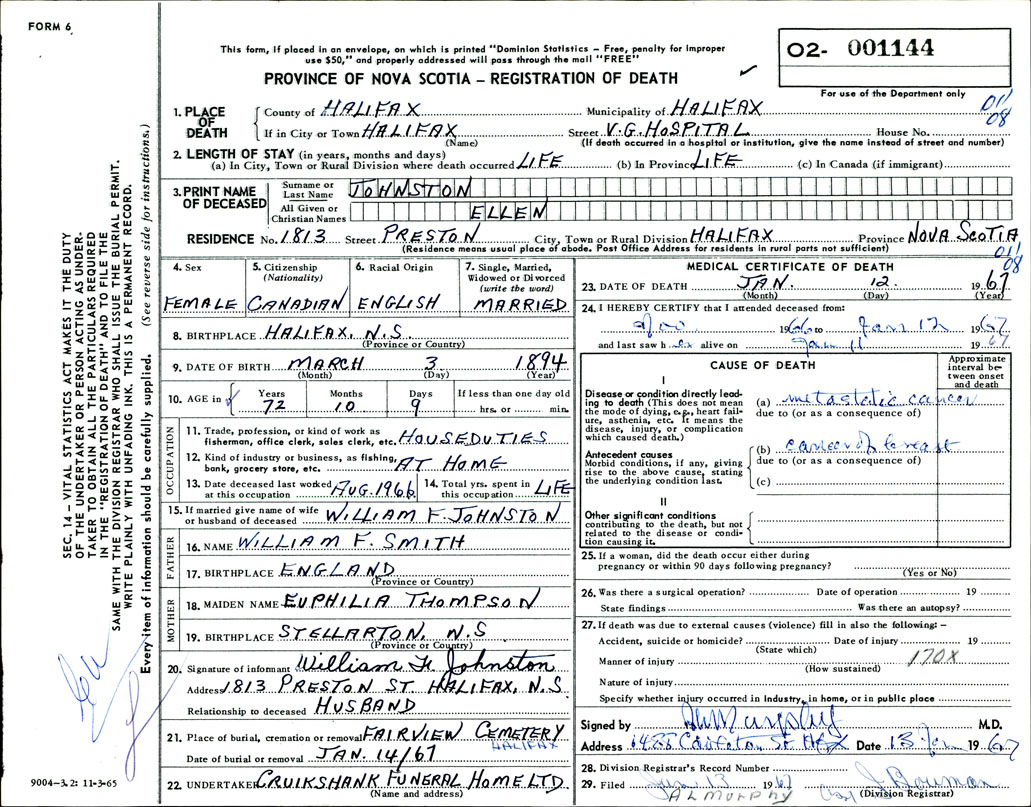 FORM 6
This form, if placed in an envelope, on which is printed "Dominion Statistics – Free, penalty for improper
use $50," and properly addressed will pass through the mail "FREE"
PROVINCE OF NOVA SCOTIA – REGISTRATION OF DEATH
02- 001144
For use of the Department only
011
08
1. PLACE OF DEATH
County of HALIFAX Municipality of HALIFAX
If in City or Town HALIFAX Street V.G. HOSPITAL House No.
(Name) (If death occurred in a hospital or institution, give the name instead of street and number)
2. LENGTH OF STAY (in years, months and days)
(a) In City, Town or Rural Division where death occurred LIFE (b) In Province LIFE (c) In Canada (if immigrant)
3. PRINT NAME OF DECEASED
Surname or Last Name JOHNSTON
All Given or Christian Names ELLEN
RESIDENCE No. 1813 Street PRESTON City, Town or Rural Division HALIFAX Province NOVA SCOTIA
(Residence means usual place of abode. Post Office Address for residents in rural parts not sufficient)
011
08
4. Sex
FEMALE
5. Citizenship
(Nationality)
CANADIAN
6. Racial Origin
ENGLISH
7. Single, Married,
Widowed or Divorced
(write the word)
MARRIED
8. BIRTHPLACE HALIFAX, N.S.
(Province or Country)
9. DATE OF BIRTH MARCH 3 1894
(Month) (Day) (Year)
10. AGE in
Years Months Days If less than one day old
72 10 9 hrs. or min.
OCCUPATION
11. Trade, profession, or kind of work as
fisherman, office clerk, sales clerk, etc. HOUSEDUTIES
12. Kind of industry or business, as fishing,
bank, grocery store, etc. AT HOME
13. Date deceased last worked
at this occupation AUG. 1966
14. Total yrs. spent in
this occupation LIFE
15. If married give name of wife
or husband of deceased WILLIAM F. JOHNSTON
FATHER
16. NAME WILLIAM F. SMITH
17. BIRTHPLACE ENGLAND
(Province or Country)
MOTHER
18. MAIDEN NAME EUPHILIA THOMPSON
19. BIRTHPLACE STELLARTON, N.S
(Province or Country)
20. Signature of informant William F. Johnston
Address 1813 PRESTON ST. HALIFAX, N.S.
Relationship to deceased HUSBAND
21. Place of burial, cremation or removal FAIRVIEW CEMETERY
HALIFAX
Date of burial or removal JAN. 14/67
22. UNDERTAKER CRUIKSHANK FUNERAL HOME LTD.
(Name and address)
MEDICAL CERTIFICATE OF DEATH
23. DATE OF DEATH JAN. 12. 1967
(Month) (Day) (Year)
24. I HEREBY CERTIFY that I attended deceased from:
Nov. 1966 to Jan 12 1967
and last saw her alive on Jan 11 1967
CAUSE OF DEATH
Approximate
interval be-
tween onset
and death
I
Disease or condition directly lead-
ing to death (This does not mean
the mode of dying, e.g., heart fail-
ure, asthenia, etc. It means the
disease, injury, or complication
which caused death.)
(a) metastatic cancer
due to (or as a consequence of)
Antecedent causes
Morbid conditions, if any, giving
rise to the above cause, stating
the underlying condition last.
(b) cancer of breast
due to (or as a consequence of)
(c)
II
Other significant conditions
contributing to the death, but not
related to the disease or condi-
tion causing it.
25. If a woman, did the death occur either during
pregnancy or within 90 days following pregnancy?
(Yes or No)
26. Was there a surgical operation? Date of operation 19
State findings Was there an autopsy?
27. If death was due to external causes (violence) fill in also the following: –
Accident, suicide or homicide? Date of injury 19
(State which)
Manner of injury 170X
(How sustained)
Nature of injury
Specify whether injury occurred in industry, in home, or in public place
Signed by Murphy M.D.
Address Carleton St Hfx Date 13 Jan 1967
28. Division Registrar's Record Number
29. Filed Jan 13 1967 J. Bowman
AL MURPHY (Division Registrar)
SEC. 14 – VITAL STATISTICS ACT MAKES IT THE DUTY
OF THE UNDERTAKER OR PERSON ACTING AS UNDER-
TAKER TO OBTAIN ALL THE PARTICULARS REQUIRED
IN THE "REGISTRATION OF DEATH" AND TO FILE THE
SAME WITH THE DIVISION REGISTRAR WHO SHALL ISSUE THE BURIAL PERMIT.
WRITE PLAINLY WITH UNFADING INK. THIS IS A PERMANENT RECORD.
Every item of information should be carefully supplied. (See reverse side for instructions.)
9004–3.2: 11-3-65